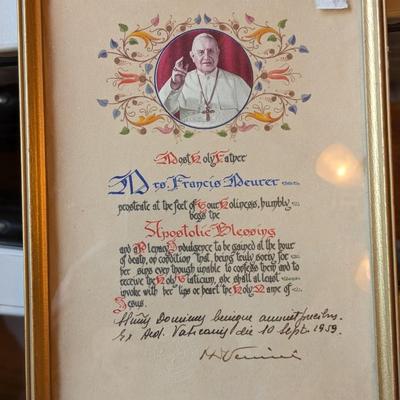 Most Holy Father
Mrs. Francis Meurer
prostrate at the feet of Your Holiness, humbly
begs the
Apostolic Blessing
and a Plenary Indulgence to be gained at the hour
of death, on condition that being truly sorry for
her sins even though unable to confess them and to
receive the Holy Viaticum, she shall at least
invoke with her lips or heart the Holy Name of
Jesus.
Dominus benigne annuit precibus.
Ex Aed. Vaticanis die 10 Sept. 1959.